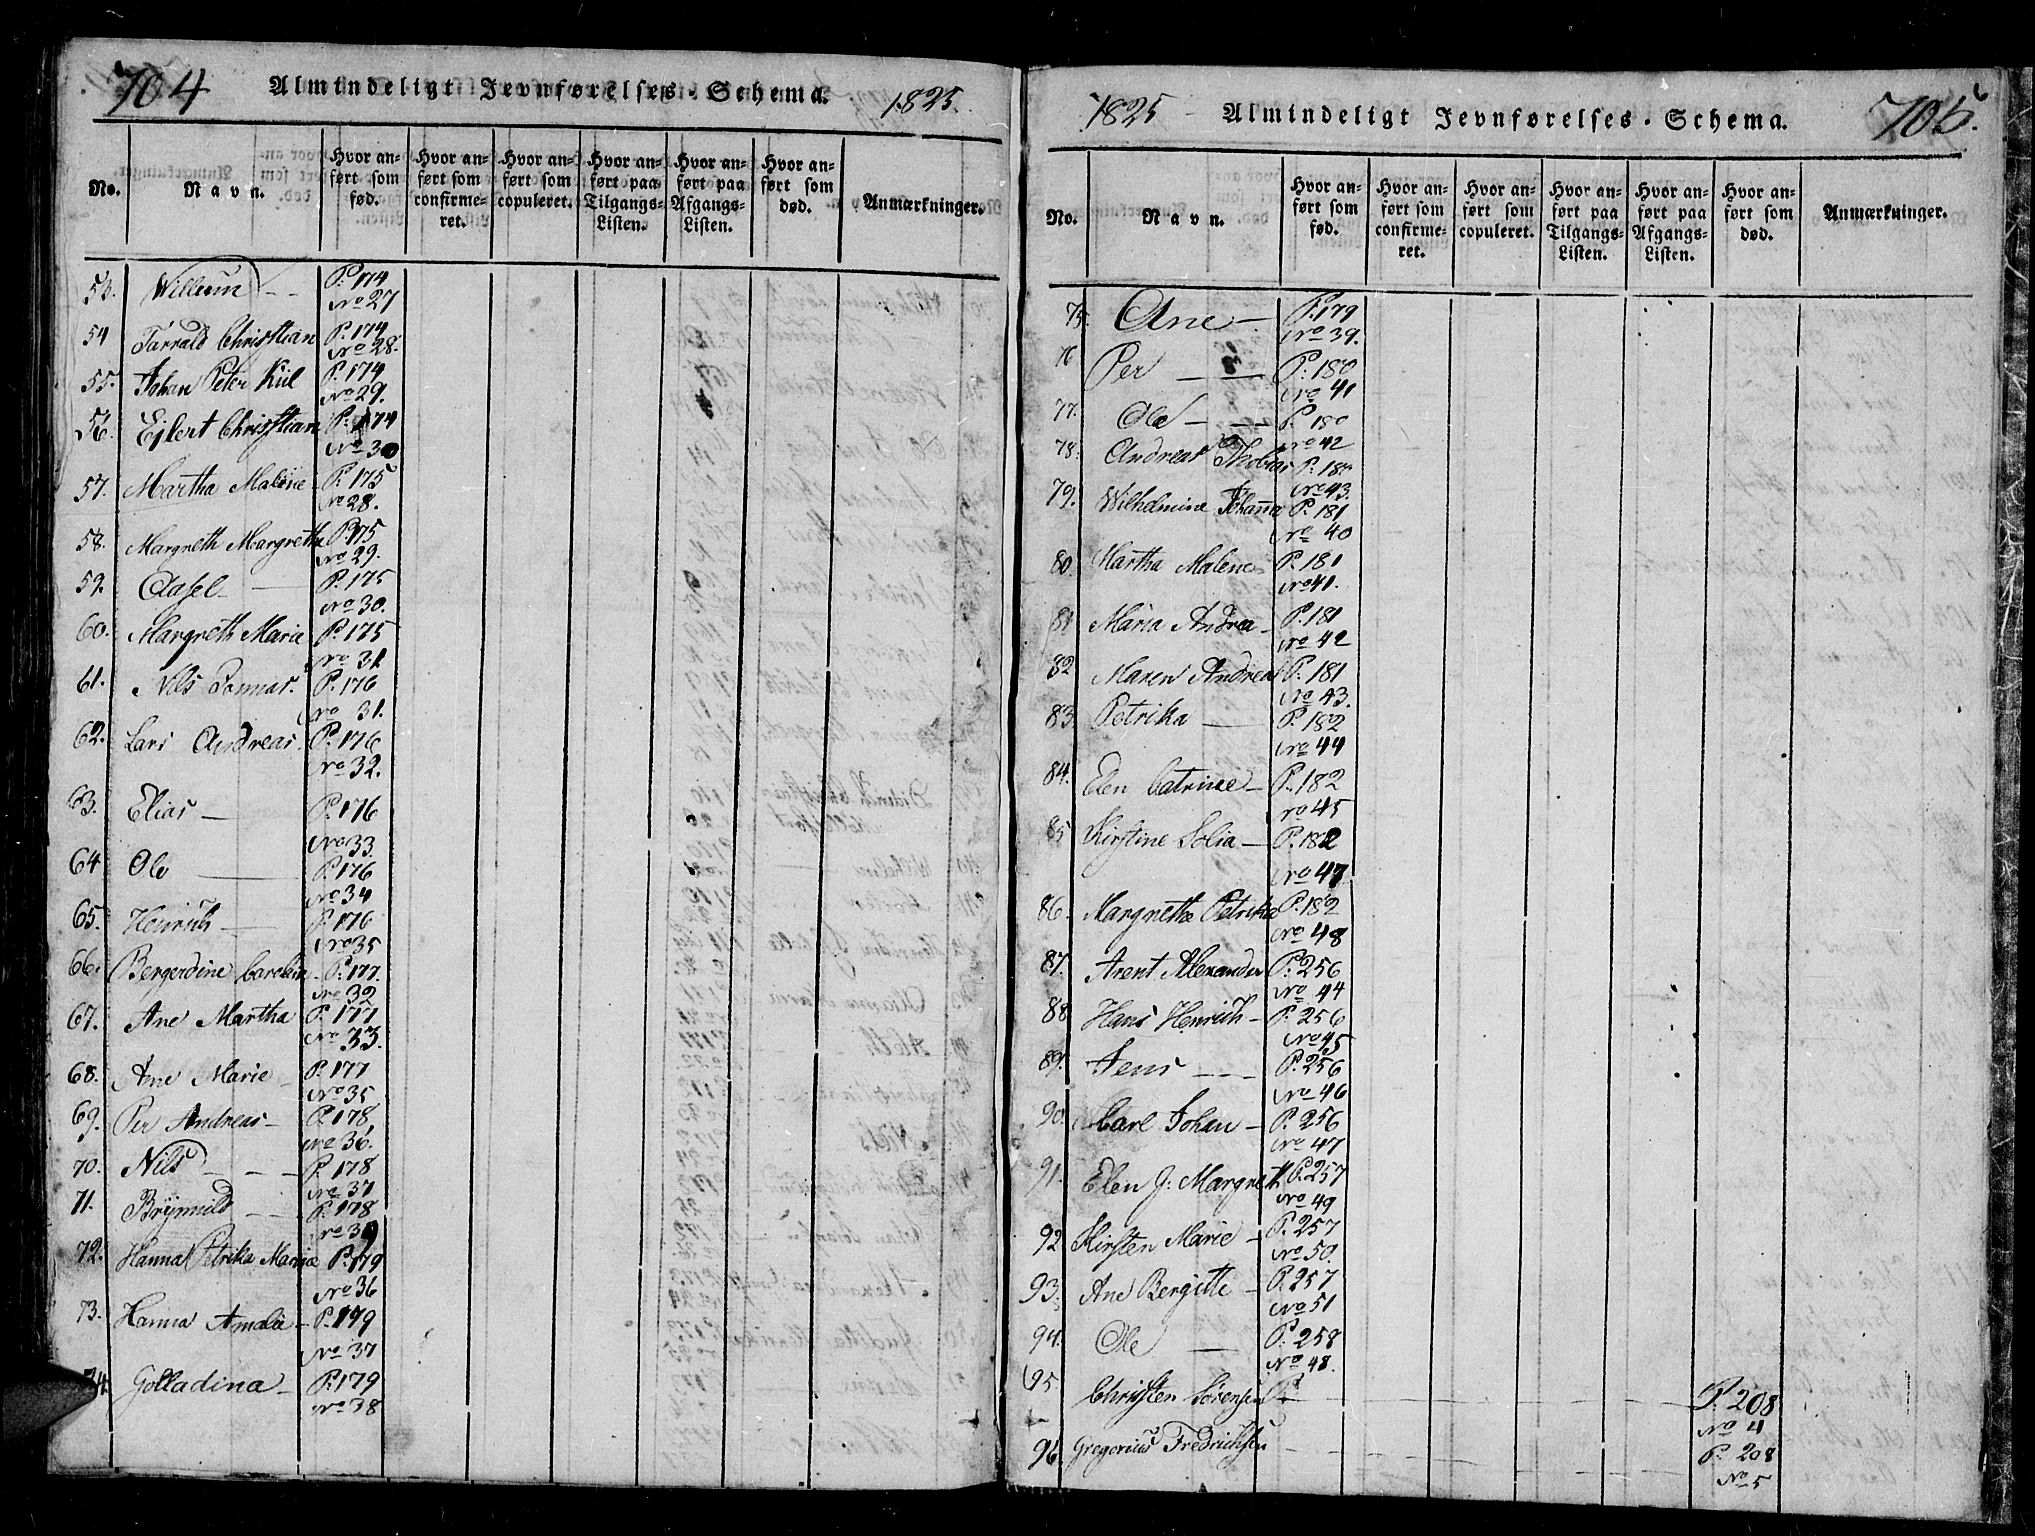 704 Almindeligt Jevnførelses-Schema. 1825.
No. Navn. Hvor anført som fød. Hvor anført som confirmeret. Hvor anført som copuleret. Hvor anført paa Tilgangs-Listen. Hvor anført paa Afgangs-Listen. Hvor anført som død. Anmærkninger.
53. Willum - - P. 174 No 27
54 Tarrald Christian P. 174 No 28.
55. Johan Peter Kiil P. 174 No 29.
56. Ejlert Christian P. 174 No 30
57. Martha Malene - P. 175 No 28.
58. Margreth Margrethe P. 175 No 29.
59. Aasel - P. 175 No 30.
60. Margreth Maria P. 175 No 31
61. Nils Tonnas. P. 176 No 31.
62. Lars Andreas. P. 176 No 32.
63. Elias - P. 176 No 33.
64 Ole - P. 176 No 34
65. Henrich - P. 176 No 35
66. Bergerdine Carolin - P. 177. No 32
67. Ane Martha P. 177 No 33.
68. Ane Marie - P. 177 No 35
69. Per Andreas - P. 178, No 36.
70. Nils - - P. 178 No 37
71. Brynnild - - P. 178 No 39
72. Hanna Petrika Marie P. 179 No 36
73. Hanna Amalie - P. 179 No 37
74. Golladina - P. 179 No 38
1825 - Almindeligt Jevnførelses-Schema. 705.
No. Navn. Hvor anført som fød. Hvor anført som confirmeret. Hvor anført som copuleret. Hvor anført paa Tilgangs-Listen. Hvor anført paa Afgangs-Listen. Hvor anført som død. Anmærkninger.
75. Ane - P. 179 No 39.
76 Per - - P. 180 No 41
77. Ole - - P. 180 No 42
78. Andreas Thobias P. 180 No 43.
79. Wilhelmine Johanna P. 181 No 40
80. Martha Malene P. 181 No 41.
81 Maria Andrea - P. 181 No 42
82 Maren Andrea P. 181 No 43.
83 Petrika - P. 182 No 44
84. Elen Catrine - P. 182 No 45
85 Kirstine Solia - P. 182 No 47.
86. Margrethe Petrika P. 182 No 48
87. Arent Alexander P. 256 No 44
88 Hans Henrich - P. 256 No 45
89. Jens - - P. 256 No 46
90. Carl Johan - P. 256 No 47
91. Elen J: Margreth P. 257 No 49
92 Kirsten Marie - P. 257 No 50.
93. Ane Bergitte - P. 257 No 51
94. Ole - P. 258 No 48.
95 Christen Sörensen P. - P. 208 No 4
96. Gregorius Fredrichsen - P. 208 No 5